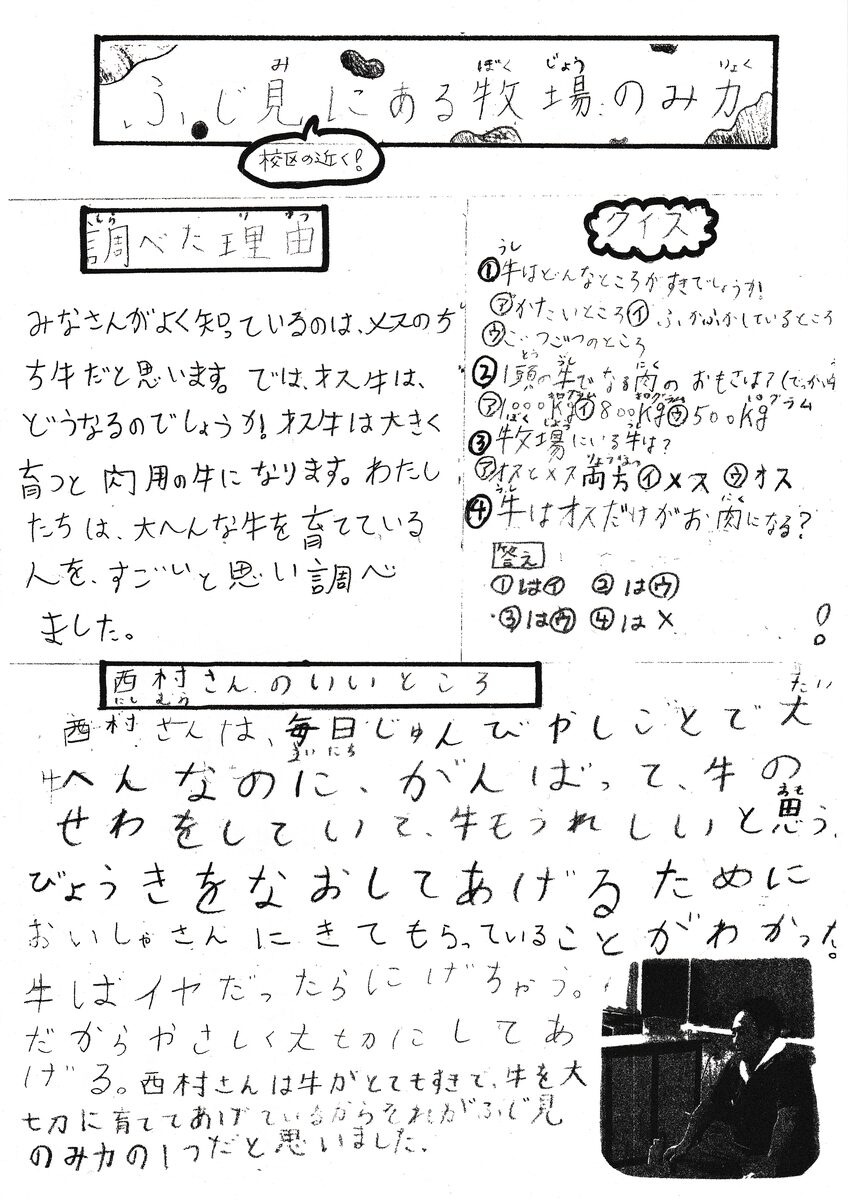 ふじ見にある牧場のみ力
み
ぼく じょう
りょく
校区の近く!
調べた理由
しら
り ゆう
みなさんがよく知っているのは、メスのち
ち牛だと思います。では、オス牛は、
どうなるのでしょうか!オス牛は大きく
育つと肉用の牛になります。わたし
たちは、大へんな牛を育てている
人を、すごいと思い調べ
ました。
クイズ
うし
①牛はどんなところがすきでしょうか!
㋐かたいところ㋑ふかふかしているところ
㋒ごつごつのところ
とう うし にく
②1頭の牛でなる肉のおもさは?
キログラム キログラム キログラム
㋐1000kg㋑800kg㋒500kg
ぼく じょう うし
③牧場にいる牛は?
りょうほう
㋐オスとメス両方㋑メス㋒オス
うし にく
④牛はオスだけがお肉になる?
答え
①は㋑ ②は㋒
③は㋒ ④は×
西村さんのいいところ
にし むら
たい
西村さんは、毎日じゅんびやしごとで大
まい にち
へんなのに、がんばって、牛の
おも
せわをしていて、牛もうれしいと思う。
びょうきをなおしてあげるために
おいしゃさんにきてもらっていることがわかった。
牛はイヤだったらにげちゃう。
だからやさしく大切にしてあ
げる。西村さんは牛がとてもすきで、牛を大
切に育ててあげているからそれがふじ見
のみ力の1つだと思いました。